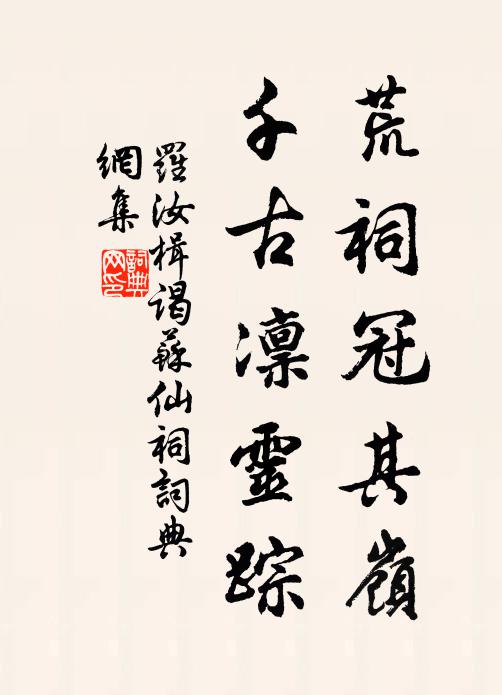 荒祠冠其嶺
千古凛靈踪
羅汝楫謁蘇仙祠詞典
網集
詞典網印